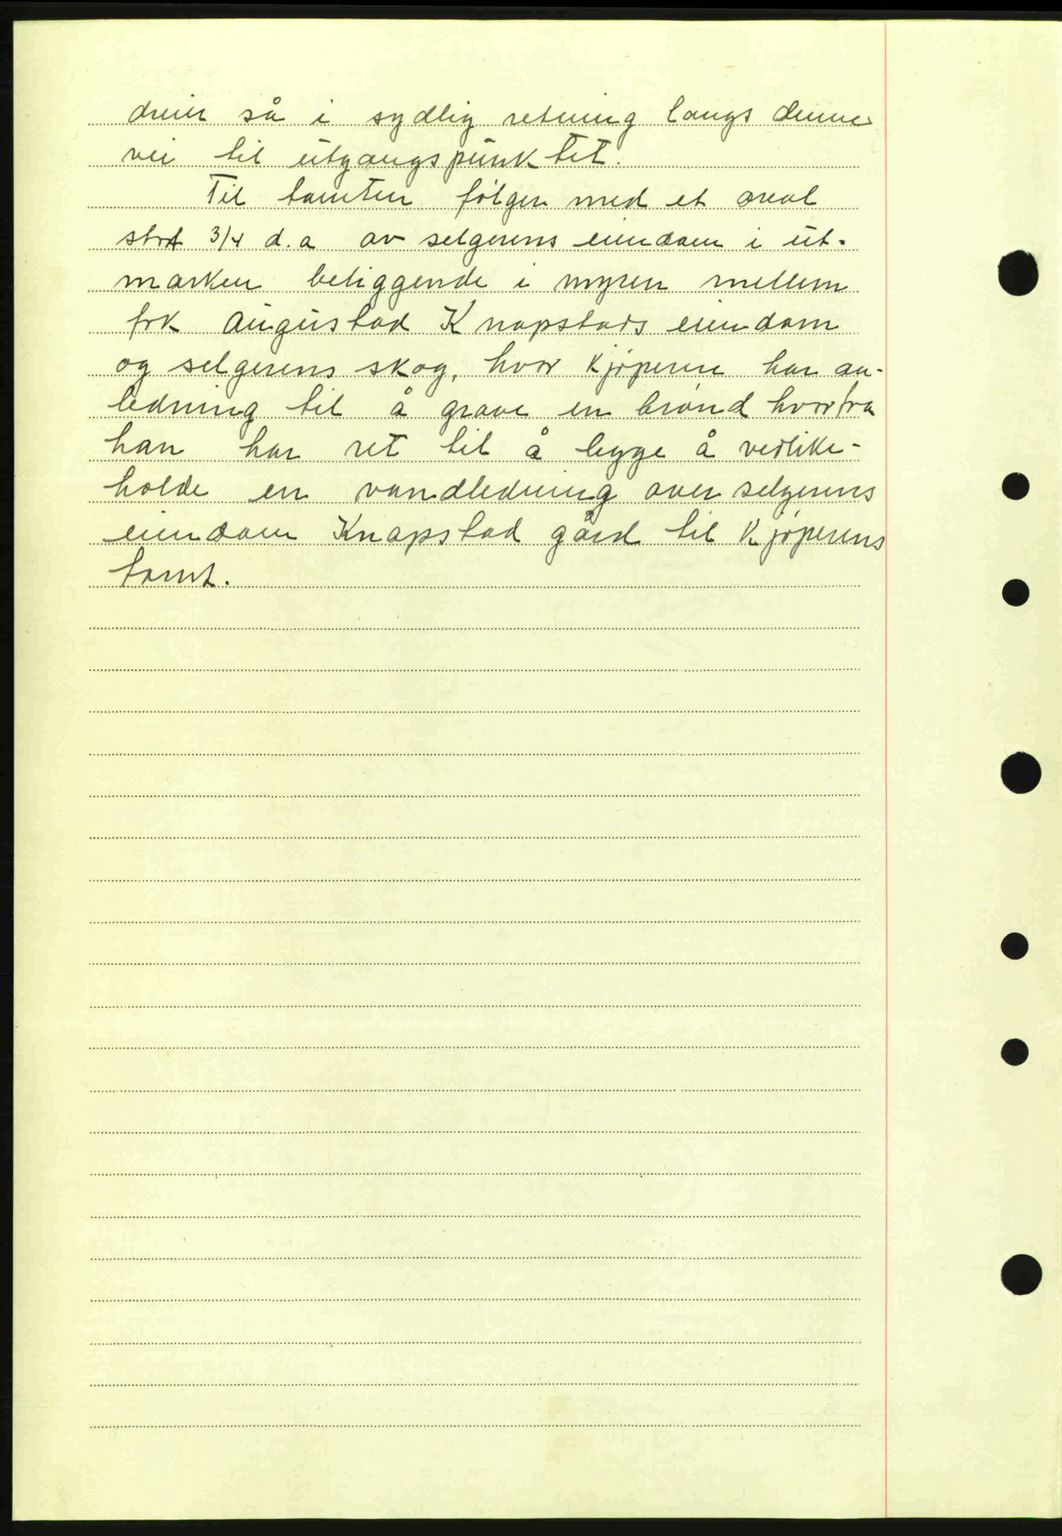 dreier så i sydlig retning langs denne
vei til utgangspunktet.
Til tomten følger med et areal
stort 3/4 d.a av selgerens eiendom i ut-
marken beliggende i myren mellem
frk Augustad Knapstads eiendom
og selgerens skog, hvor kjøperen har an-
ledning til å grave en brønd hvorfra
han har ret til å legge å vedlike-
holde en vandledning over selgerens
eiendom Knapstad gård til kjøperens
tomt.